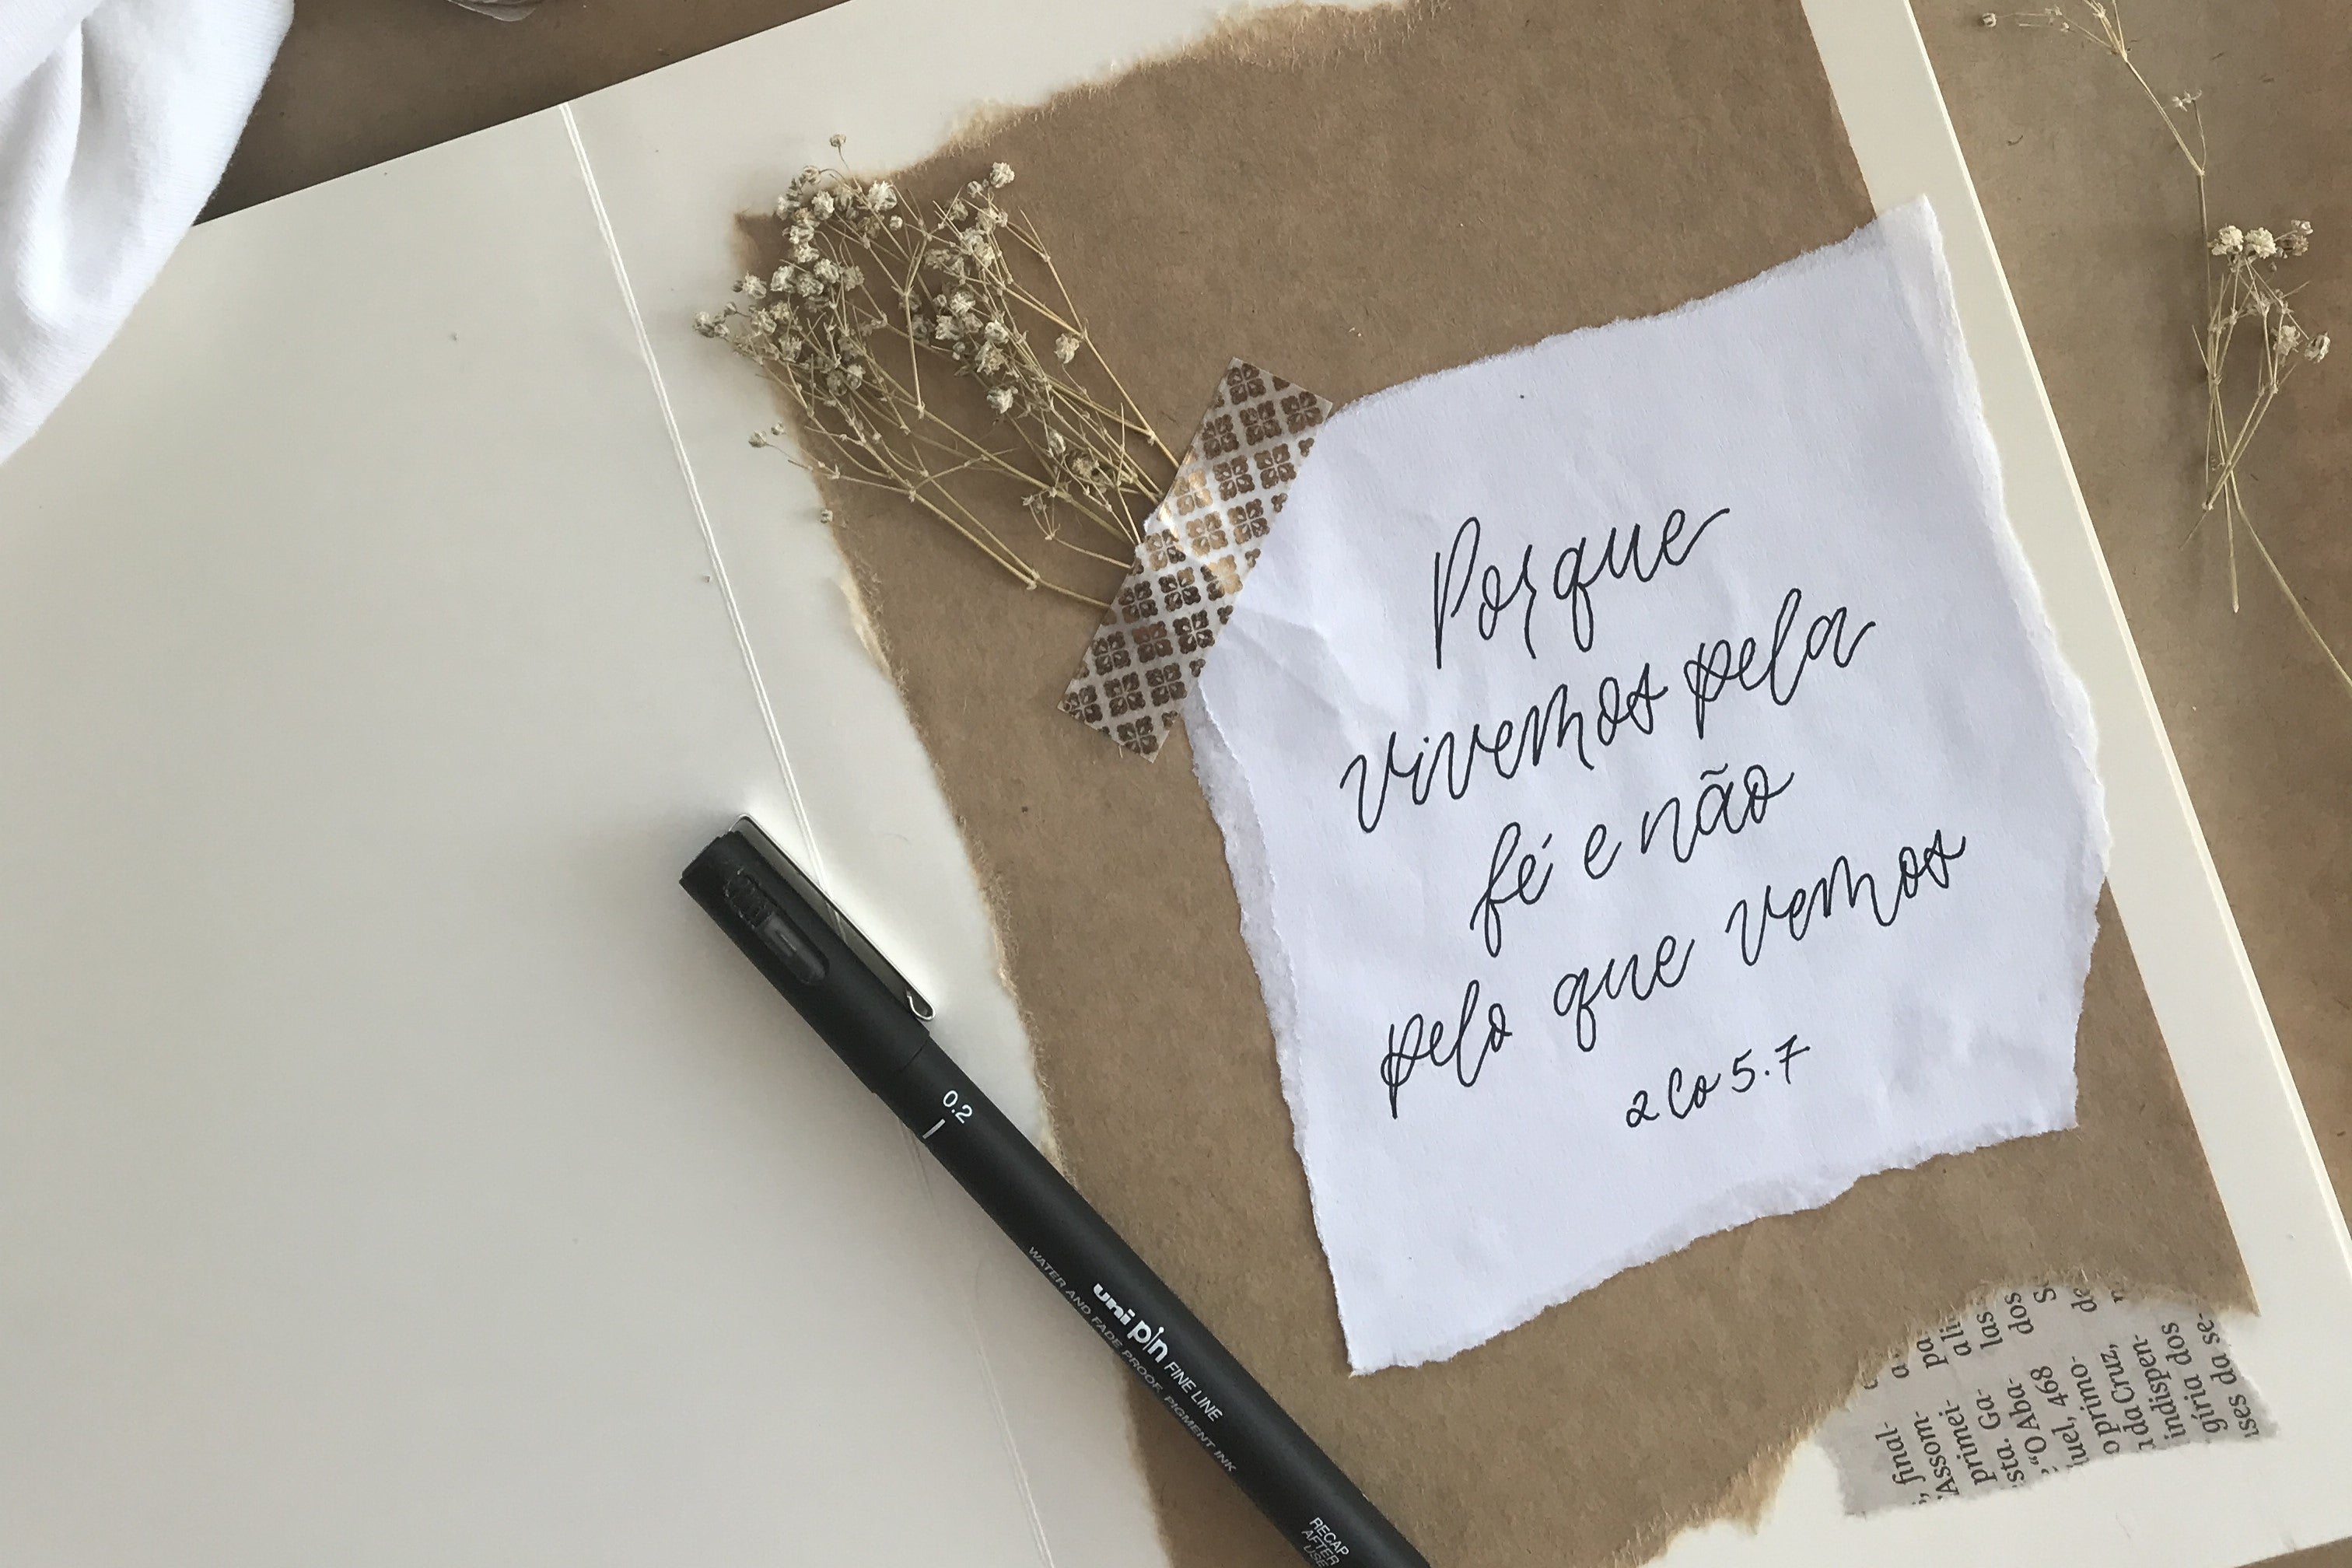 Porque
vivemos pela
fé e não
pelo que vemos
2 Co 5.7
0.2
uni pin FINE LINE
WATER AND FADE PROOF PIGMENT INK
RECAP
AFTER
USE
, final- a
Assom- pa
primei- ali
sta. Ga- las
"O Aba- dos S
uel, 468
o primo- de
da Cruz,
indispen-
gíria dos
sses da se-